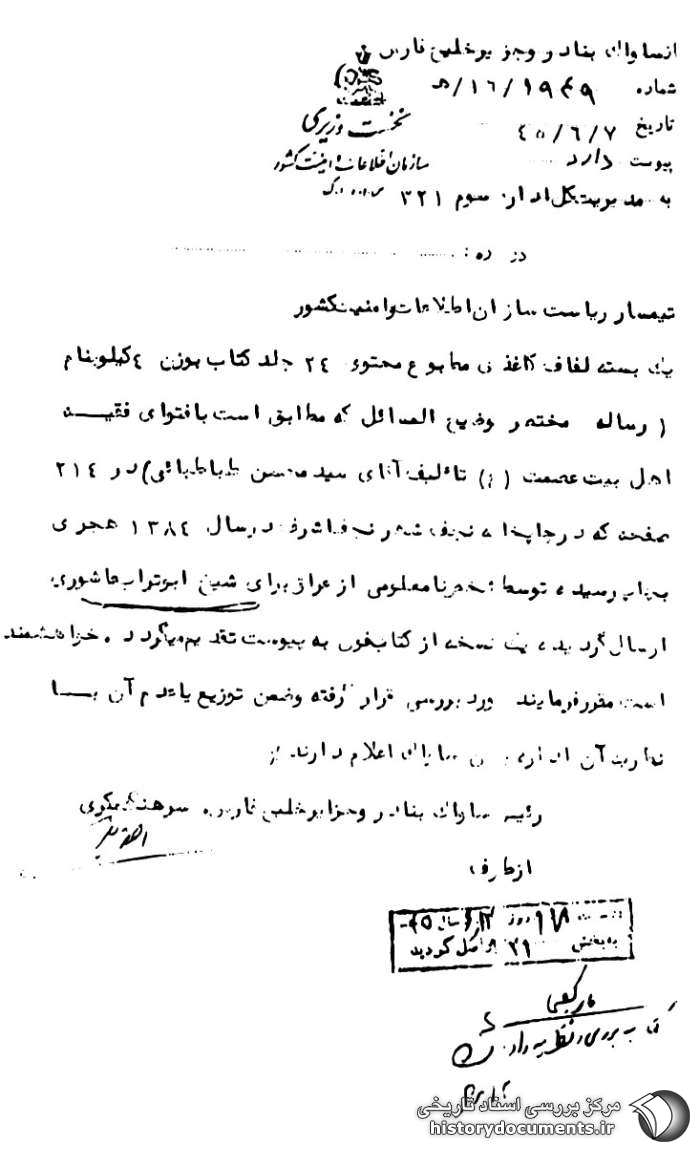 از ساواک بنادر و جزایر خلیج فارس
شماره ۱۹۴۹/۱۶/ه‍
تاریخ ۴۵/۶/۷
پیوست دارد
نخست وزیری
سازمان اطلاعات و امنیت کشور
به مدیریت کل اداره سوم ۳۲۱
در باره:
تیمسار ریاست سازمان اطلاعات و امنیت کشور
یک بسته لفاف کاغذی مطبوع محتوی ۲۴ جلد کتاب بوزن ۴ کیلو بنام
( رساله مختصر توضیح المسائل که مطابق است با فتوای فقیه
اهل بیت عصمت (ع) تالیف آقای سید محسن طباطبائی) در ۲۱۴
صفحه که در چاپخانه نجف شهر نجف اشرف در سال ۱۳۸۴ هجری
بچاپ رسیده توسط شخص نامعلومی از عراق برای شیخ ابوتراب عاشوری
ارسال گردیده یک نسخه از کتابفوق به پیوست تقدیم میگردد. خواهشمند
است مقرر فرمایند مورد بررسی قرار گرفته وضمن توزیع یا عدم آن با
نظریه آن اداره باین ساواک اعلام دارند
رئیس ساواک بنادر و جزایر خلیج فارس. سرهنگ
از طرف
روز ۱۲/۶ سال ۴۵
به بخش ۳۲۱ واصل گردید
مرکز بررسی اسناد تاریخی
historydocuments.ir